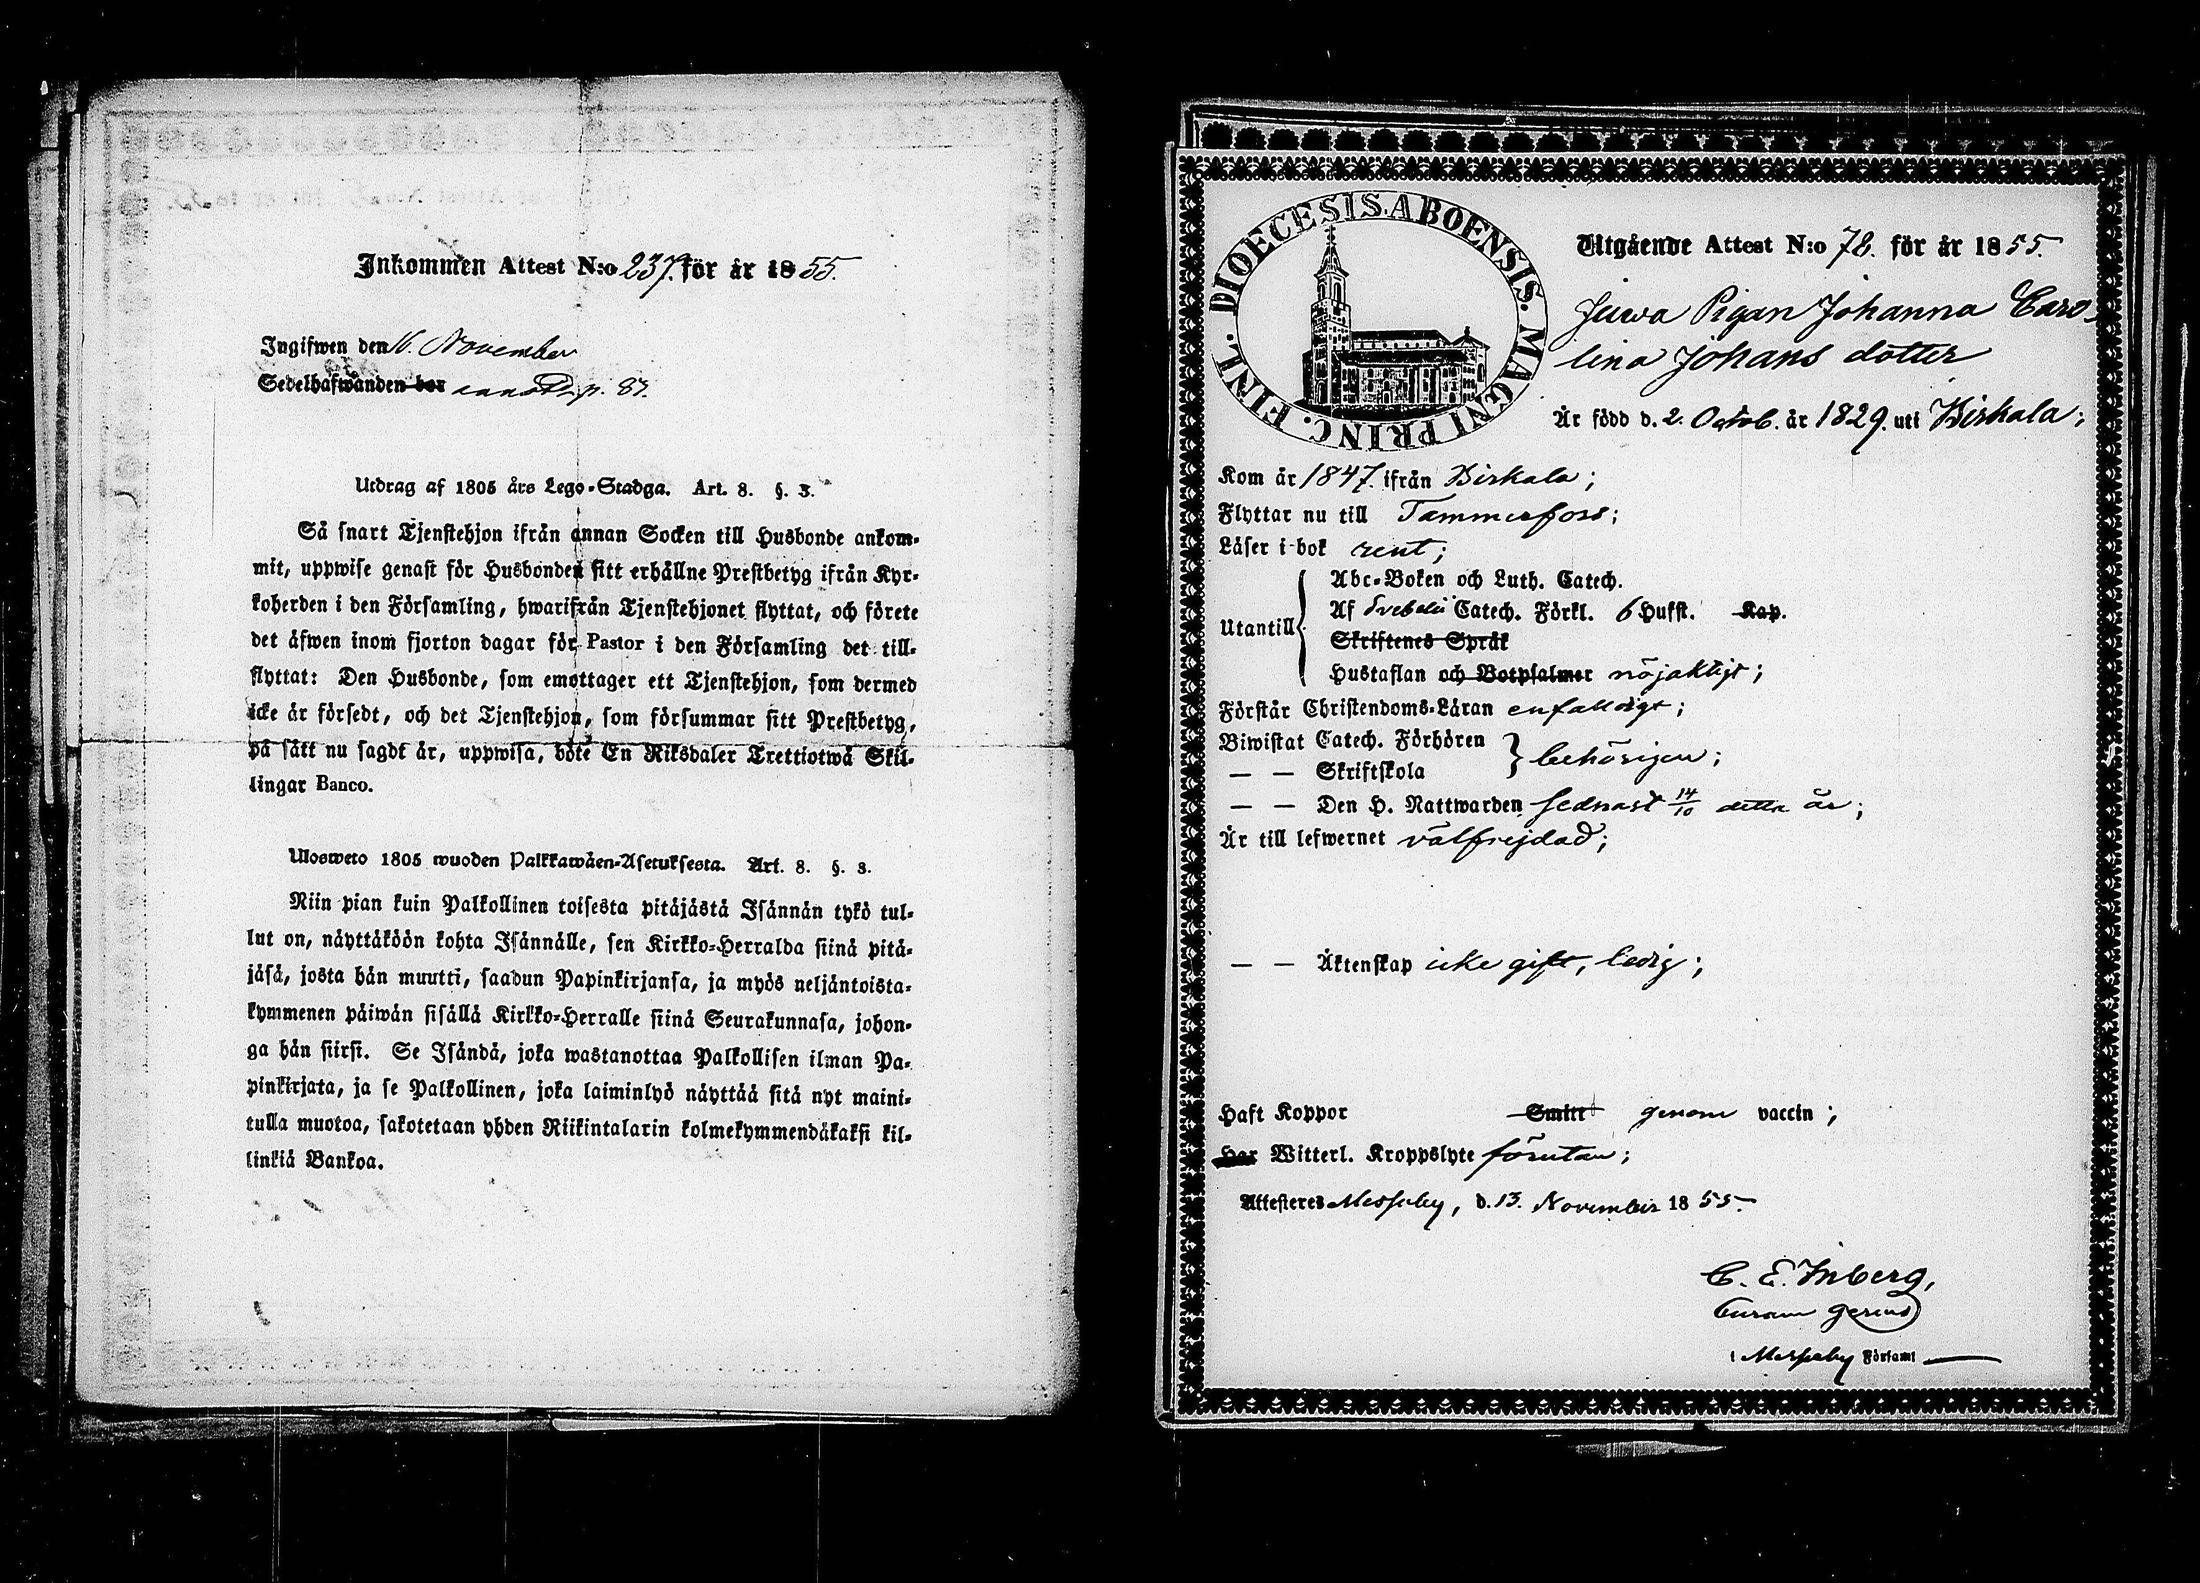 Inkommen Attest N:o 237. för år 1855.
Ingifwen den 16. November
Sedelhafwanden bor p. 87.
Utdrag af 1805 års Lego-Stadga. Art. 8. §. 3.
Så snart Tjenstehjon ifrån annan Socken till Husbonde ankom-
mit, uppwise genast för Husbonden sitt erhållne Prestbetyg ifrån Kyr-
koherden i den Församling, hwarifrån Tjenstehjonet flyttat, och förete
det äfwen inom fjorton dagar för Pastor i den Församling det till-
flyttat: Den Husbonde, som emottager ett Tjenstehjon, som dermed
icke är försedt, och det Tjenstehjon, som försummar sitt Prestbetyg,
på sätt nu sagdt är, uppwisa, böte En Riksdaler Trettiotwå Skil-
lingar Banco.
Ulosweto 1805 wuoden Palkkawäen-Asetuksesta. Art. 8. §. 3.
Niin pian kuin Palkollinen toisesta pitäjästä Isännän tykö tul-
lut on, näyttäköön kohta Isännälle, sen Kirkko-Herralda siinä pitä-
jäsä, josta hän muutti, saadun Papinkirjansa, ja myös neljäntoista-
kymmenen päiwän sisällä Kirkko-Herralle siinä Seurakunnasa, johon-
ga hän siirsi. Se Isändä, joka wastanottaa Palkollisen ilman Pa-
pinkirjata, ja se Palkollinen, joka laiminlyö näyttää sitä nyt maini-
tulla muotoa, sakotetaan yhden Riikintalarin kolmekymmendäkaksi kil-
linkiä Bankoa.
DIOECESIS. ABOENSIS. MAGNI PRINC. FINL.
Utgående Attest N:o 78. för år 1855.
Pigan Johanna Caro-
lina Johans dotter
Är född d. 2. Octob. år 1829. uti Birkala;
Kom år 1847. ifrån Birkala;
Flyttar nu till Tammerfors;
Läser i bok rent;
Utantill
Abc-Boken och Luth. Catech.
Af Svebelii Catech. Förkl. 6 Hufst. Kap.
Skriftenes Språk
Hustaflan och Botpsalmer nöjaktigt;
Förstår Christendoms-Läran enfalldigt;
Biwistat Catech. Förhören
— — Skriftskola behörigen;
— — Den H. Nattwarden sednast 14/10 detta år;
Är till lefwernet välfrejdad;
— — Äktenskap icke gift, ledig;
Haft Koppor Smitt genom vaccin;
Har Witterl. Kroppslyte förutan;
Attesteres Messuby, d. 13. November 1855.
C. E. Inberg,
Curam gerens
i Messuby Församl